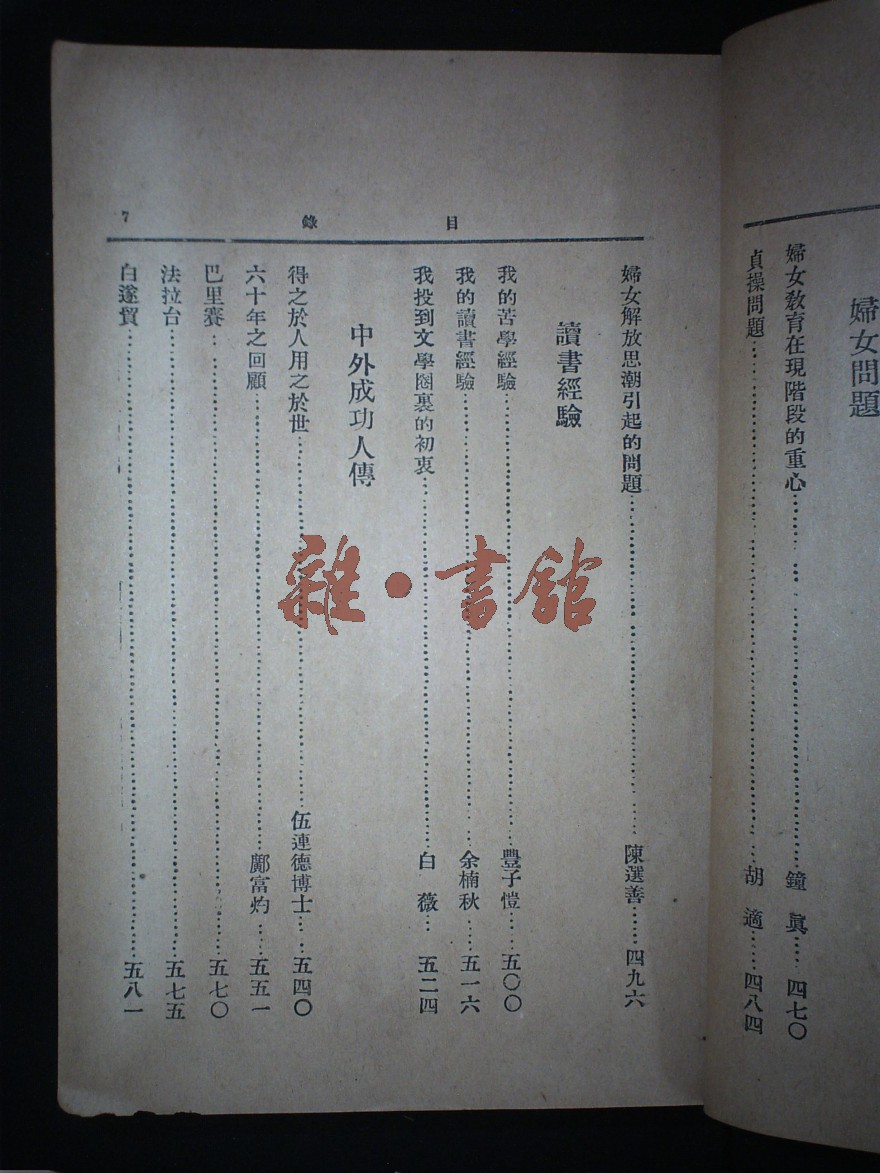 婦女問題
婦女教育在現階段的重心……………鐘 眞……四七〇
貞操問題……………胡 適……四八四
目 錄 7
婦女解放思潮引起的問題……………陳選善……四九六
讀書經驗
我的苦學經驗……………豐子愷……五〇〇
我的讀書經驗……………余楠秋……五一六
我投到文學圈裏的初衷……………白 薇……五二四
中外成功人傳
得之於人用之於世……………伍連德博士……五四〇
六十年之回顧……………鄺富灼……五五一
巴里賽……………五七〇
法拉台……………五七五
白遂賀……………五八一
雜·書館